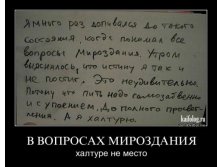 Я много раз допивался до такого
состояния, когда понимал все
вопросы Мироздания. Утром
выяснилось, что истину я так и
не постиг. Это неудивительно.
Потому что пить надо самозабвенно
и с упоением, до полного просвет-
ления. А я халтурю.
kaifolog.ru
В ВОПРОСАХ МИРОЗДАНИЯ
халтуре не место